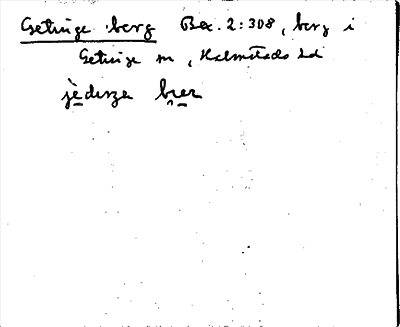 Getinge berg Bex. 2:308, berg i
Getinge sn, Halmstads hd
jèdınge bıer